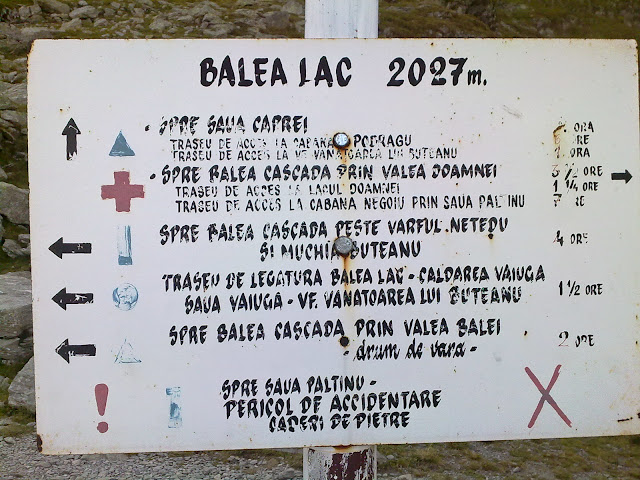 BALEA LAC 2027m.
SPRE SAUA CAPREI ORA
TRASEU DE ACCES LA CABANA PODRAGU
TRASEU DE ACCES LA VF. VANATOAREA LUI BUTEANU ORA
SPRE BALEA CASCADA PRIN VALEA DOAMNEI 1/2 ORE
TRASEU DE ACCES LA LACUL DOAMNEI 1 1/4 ORE
TRASEU DE ACCES LA CABANA NEGOIU PRIN SAUA PALTINU 7 RE
SPRE BALEA CASCADA PESTE VARFUL NETEDU
SI MUCHIA BUTEANU 4 ORE
TRASEU DE LEGATURA BALEA LAC - CALDAREA VAIUGA
SAUA VAIUGA - VF. VANATOAREA LUI BUTEANU 1 1/2 ORE
SPRE BALEA CASCADA PRIN VALEA BALEI 2 ORE
- drum de vara -
SPRE SAUA PALTINU -
PERICOL DE ACCIDENTARE
CADERI DE PIETRE